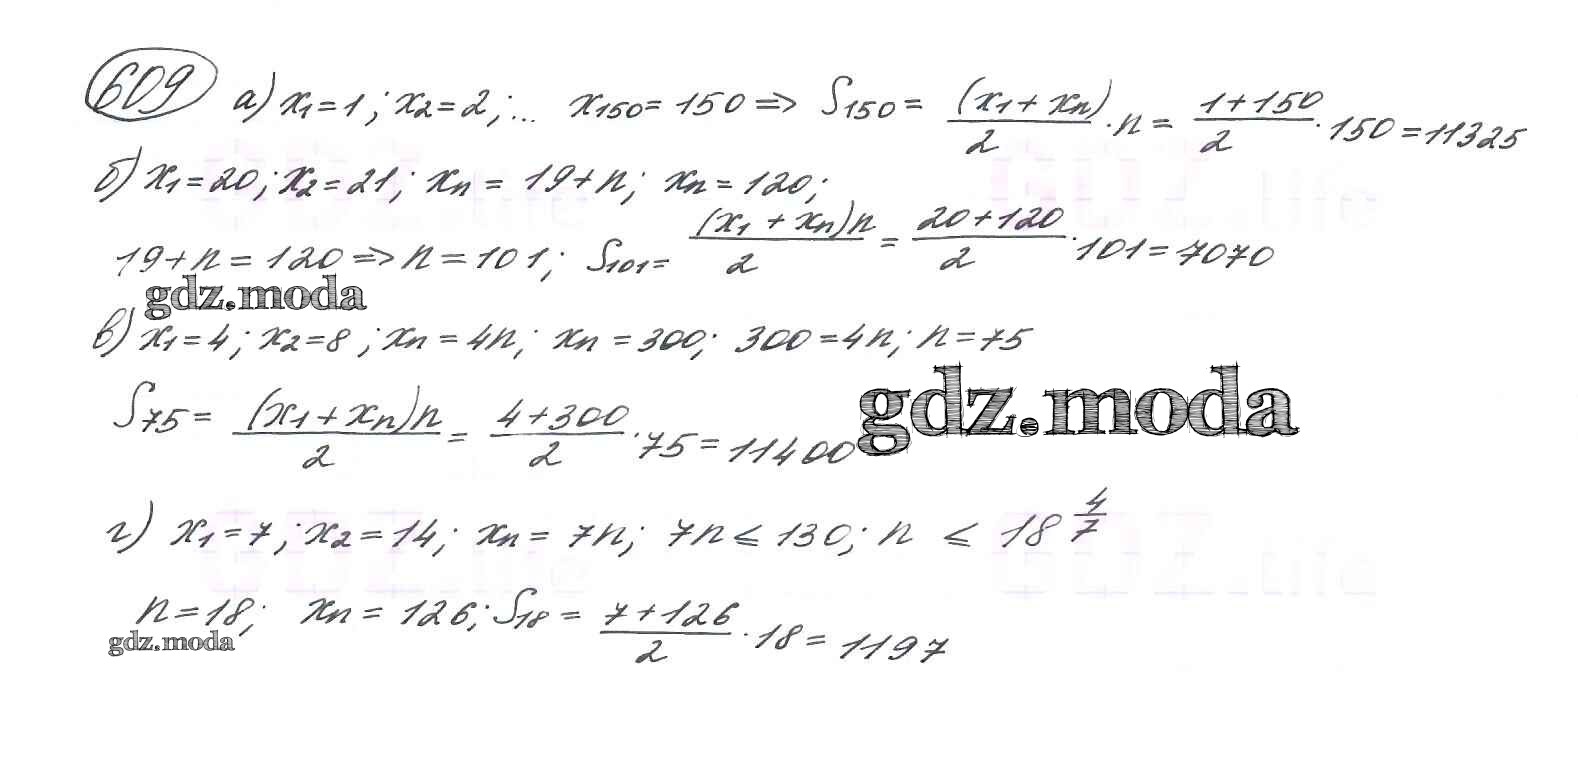 609 а) x₁=1; x₂=2; ... x₁₅₀=150 => S₁₅₀ = (x₁+xₙ)/2 · n = (1+150)/2 · 150 = 11325
GDZ.life GDZ.life
б) x₁=20; x₂=21; xₙ = 19+n; xₙ=120;
19+n=120 => n=101; S₁₀₁= (x₁+xₙ)n/2 = (20+120)/2 · 101 = 7070
gdz.moda
в) x₁=4; x₂=8; xₙ=4n; xₙ=300; 300=4n; n=75
S₇₅ = (x₁+xₙ)n/2 = (4+300)/2 · 75 = 11400
gdz.moda
г) x₁=7; x₂=14; xₙ=7n; 7n ≤ 130; n ≤ 18 4/7
GDZ.life GDZ.life
n=18; xₙ=126; S₁₈ = (7+126)/2 · 18 = 1197
gdz.moda